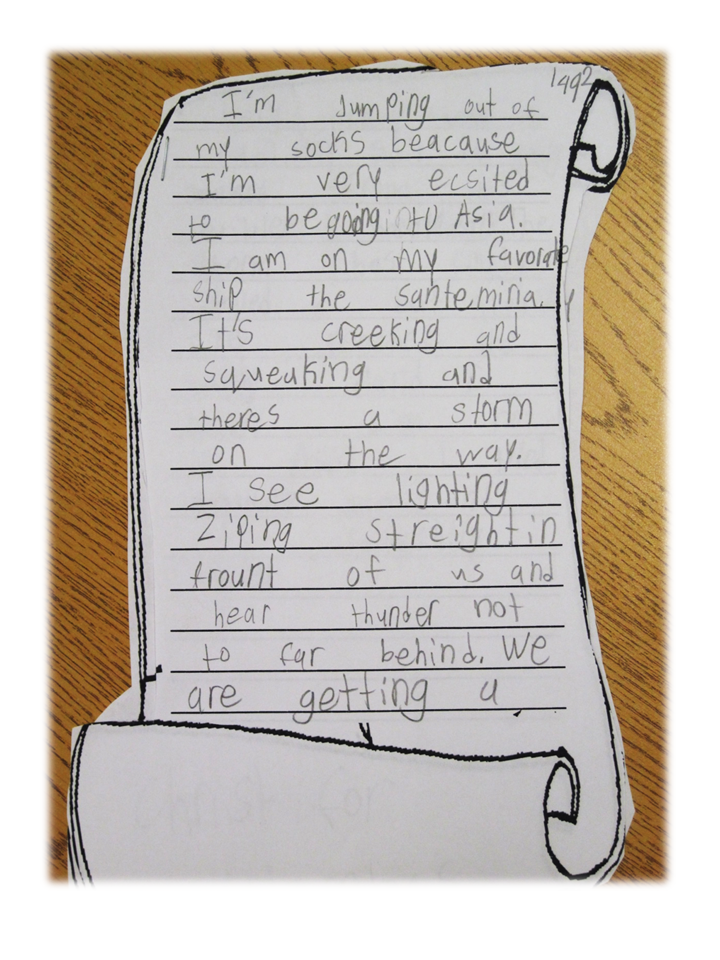 1492
I'm Jumping out of
my socks beacause
I'm very ecsited
to be going to Asia.
I am on my favorate
ship the santemiria.
It's creeking and
squeaking and
theres a storm
on the way.
I see lighting
Ziping streight in
frount of us and
hear thunder not
to far behind. We
are getting a